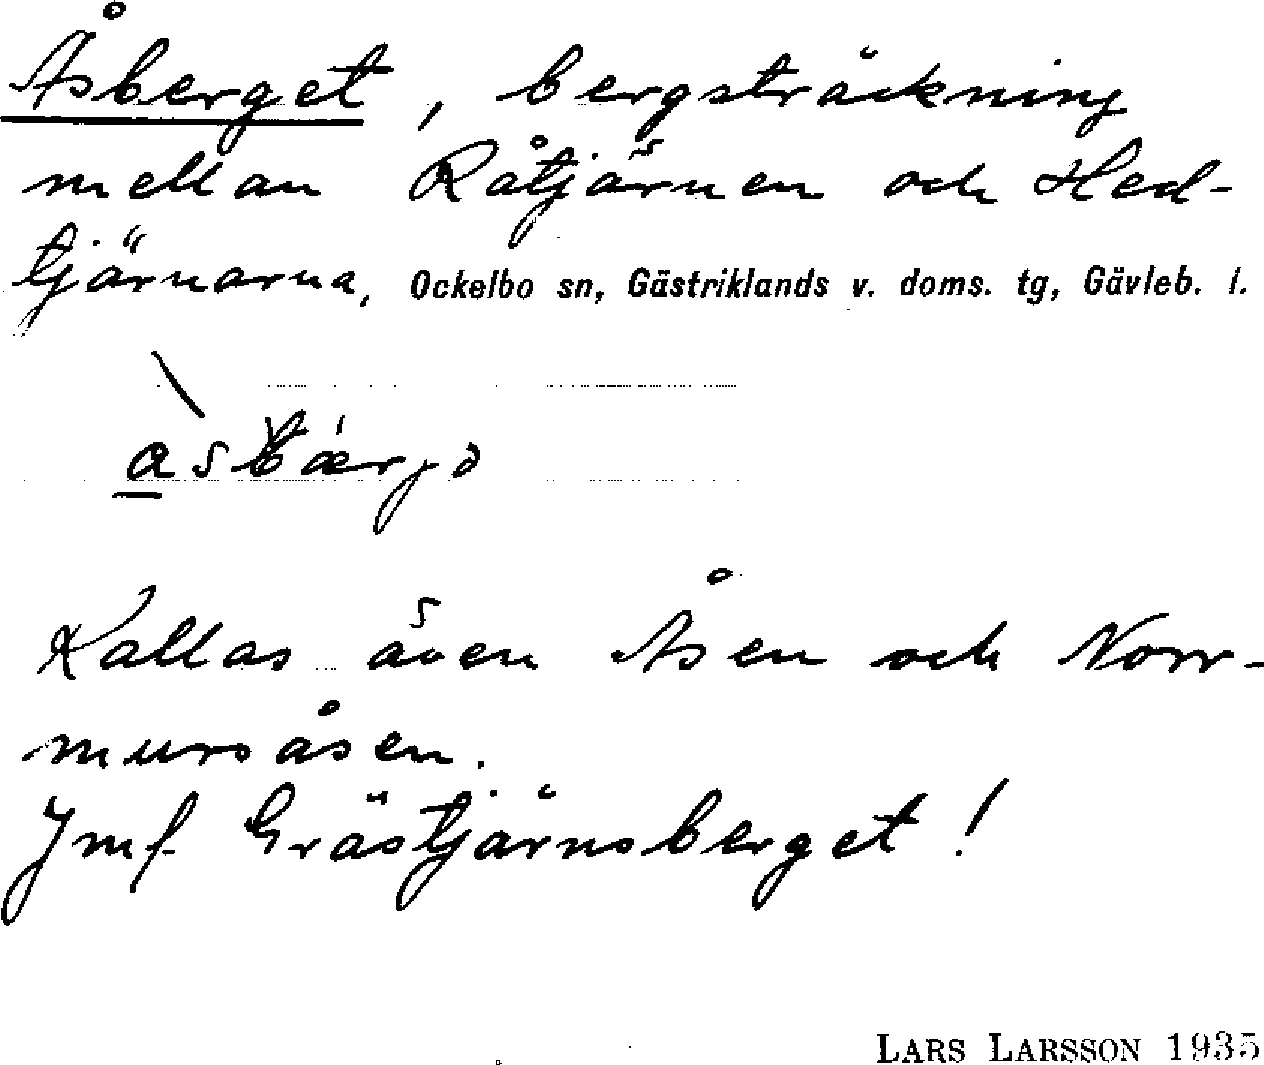 Åsberget, bergsträckning
mellan Råtjärnen och Hed-
tjärnarna, Ockelbo sn, Gästriklands v. doms. tg, Gävleb. l.
Kallas även Åsen och Norr-
mursåsen.
Jmf Grästjärnsberget!
LARS LARSSON 1935